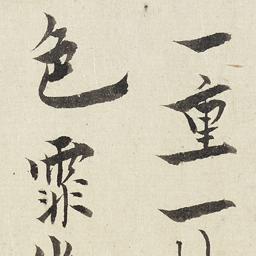 一重一
色霏